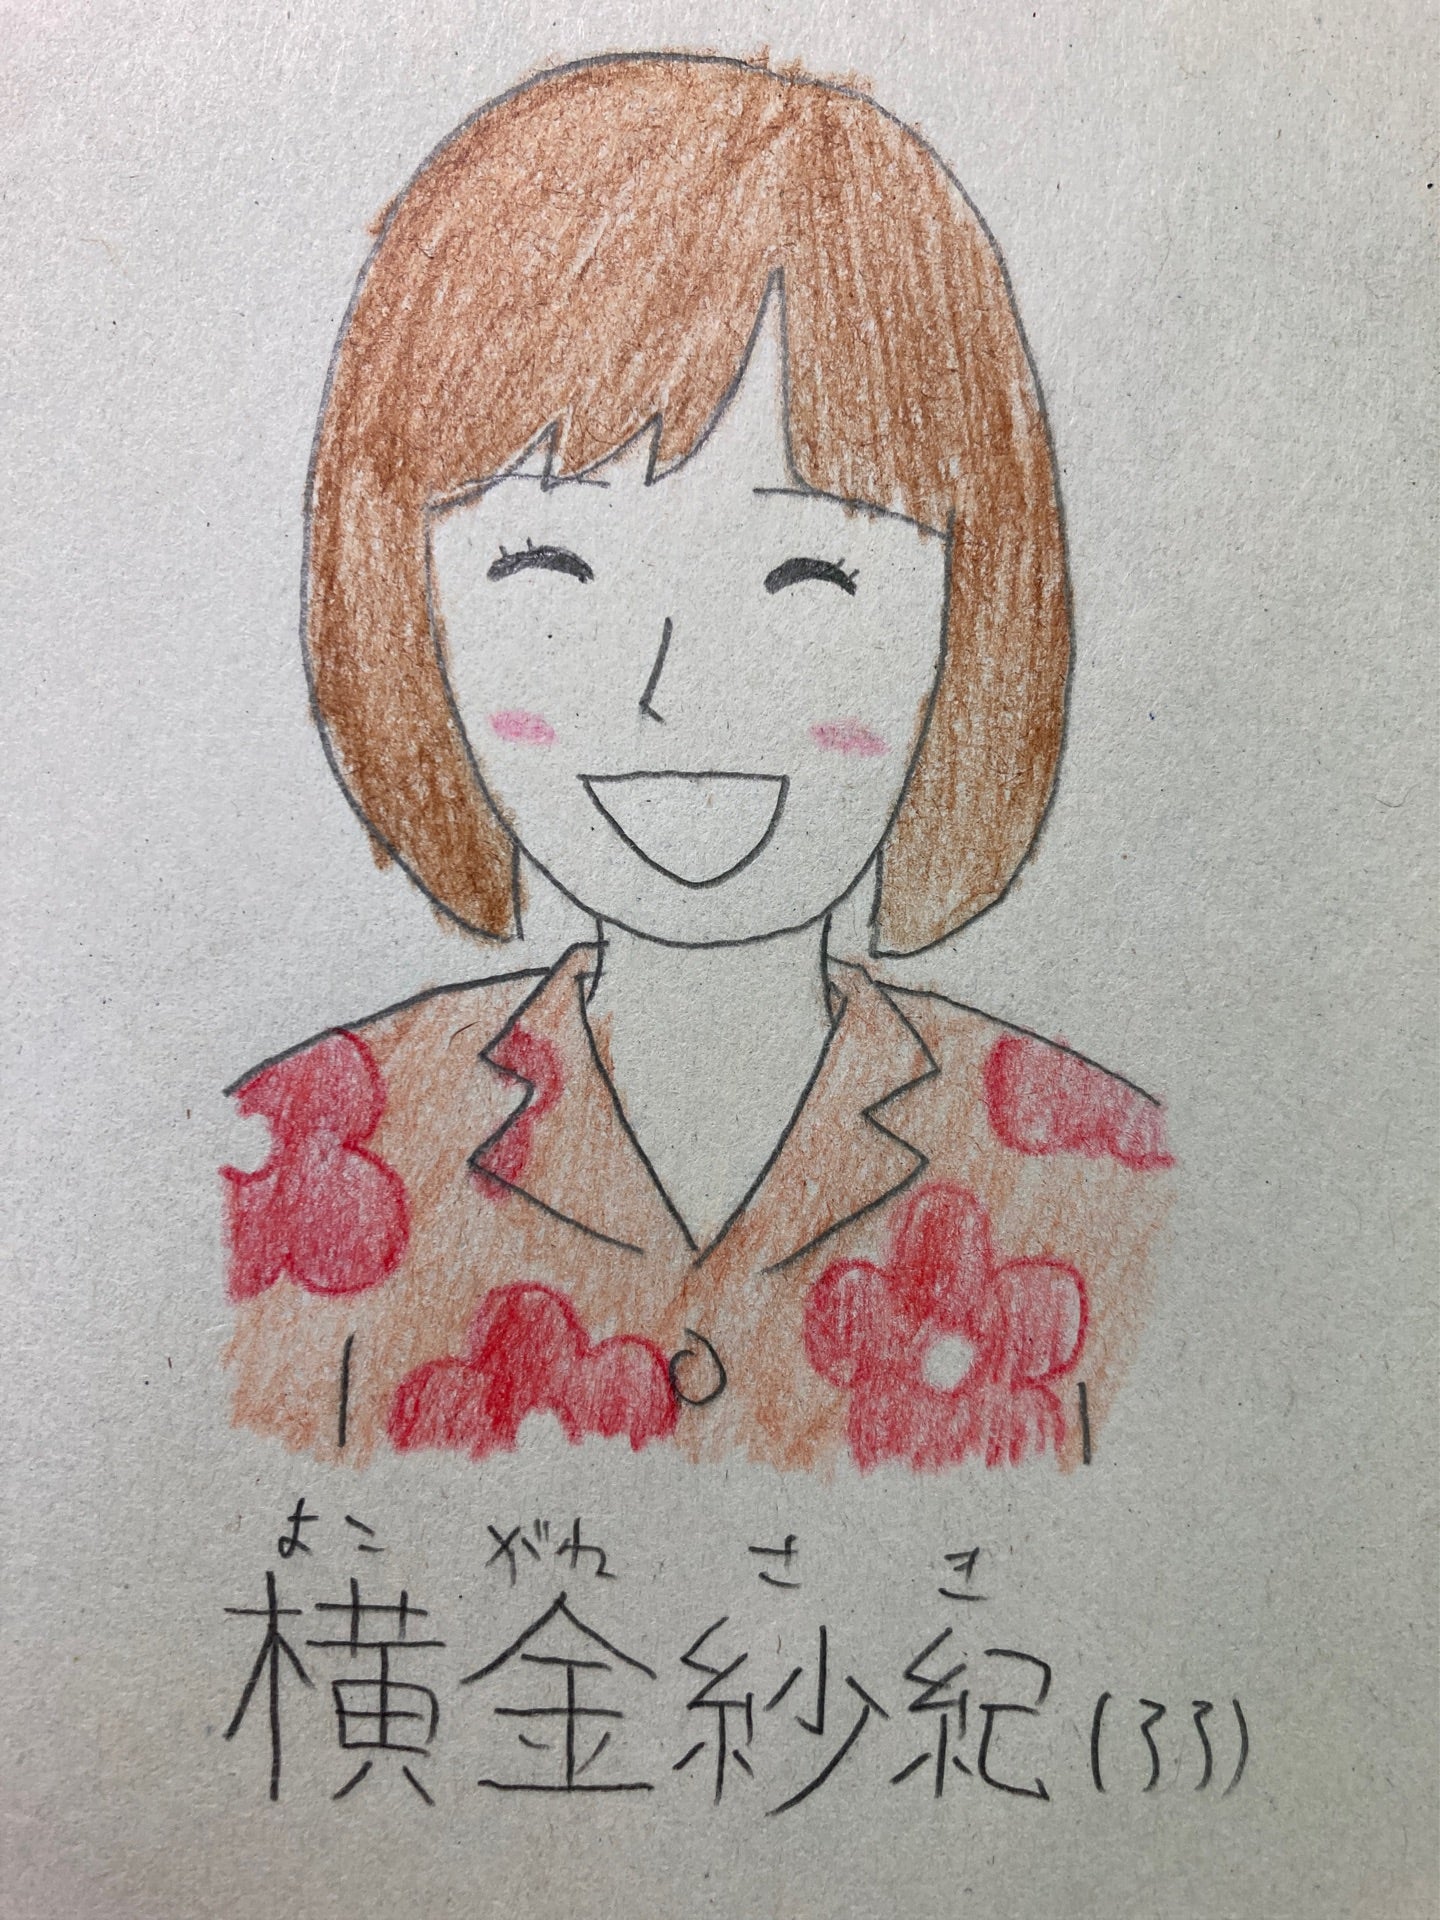 よこ がれ さ き
横金紗紀(33)